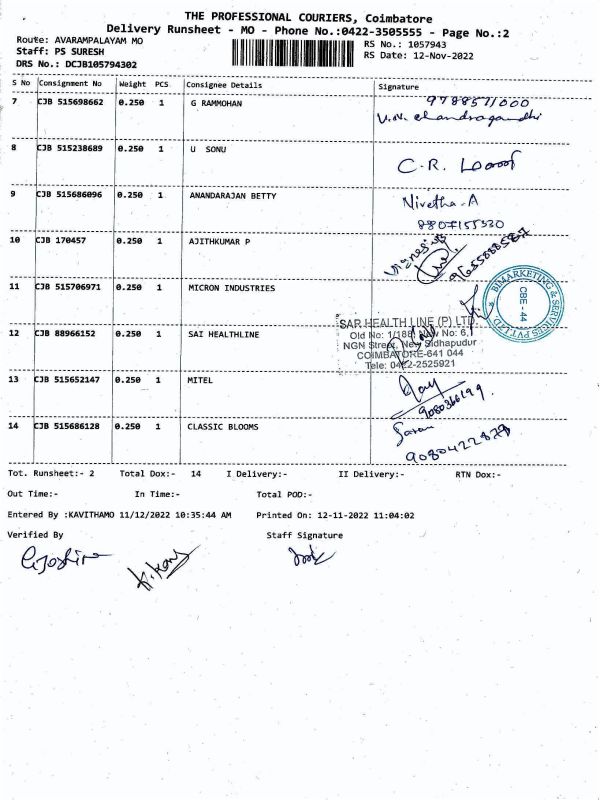 THE PROFESSIONAL COURIERS, Coimbatore
Delivery Runsheet - MO - Phone No.:0422-3505555 - Page No.:2
Route: AVARAMPALAYAM MO
RS No.: 1057943
Staff: PS SURESH
RS Date: 12-Nov-2022
DRS No.: DCJB105794302
S No Consignment No Weight PCS Consignee Details Signature
7 CJB 515698662 0.250 1 G RAMMOHAN
9788571000
V.N. chandragandhi
8 CJB 515238689 0.250 1 U SONU
C.R.
9 CJB 515686096 0.250 1 ANANDARAJAN BETTY
Nivetha.A
8807155330
10 CJB 170457 0.250 1 AJITHKUMAR P
9655888587
11 CJB 515706971 0.250 1 MICRON INDUSTRIES
BIMARKETING & SERVICES PVT LTD
CBE - 44
12 CJB 88966152 0.250 1 SAI HEALTHLINE
SAR HEALTH LINE (P) LTD
Old No: 1/188, New No: 6,
NGN Street, New Sidhapudur
COIMBATORE-641 044
Tele: 0422-2525921
13 CJB 515652147 0.250 1 MITEL
9080366199
14 CJB 515686128 0.250 1 CLASSIC BLOOMS
Saran
9080422879
Tot. Runsheet:- 2 Total Dox:- 14 I Delivery:- II Delivery:- RTN Dox:-
Out Time:- In Time:- Total POD:-
Entered By :KAVITHAMO 11/12/2022 10:35:44 AM Printed On: 12-11-2022 11:04:02
Verified By Staff Signature